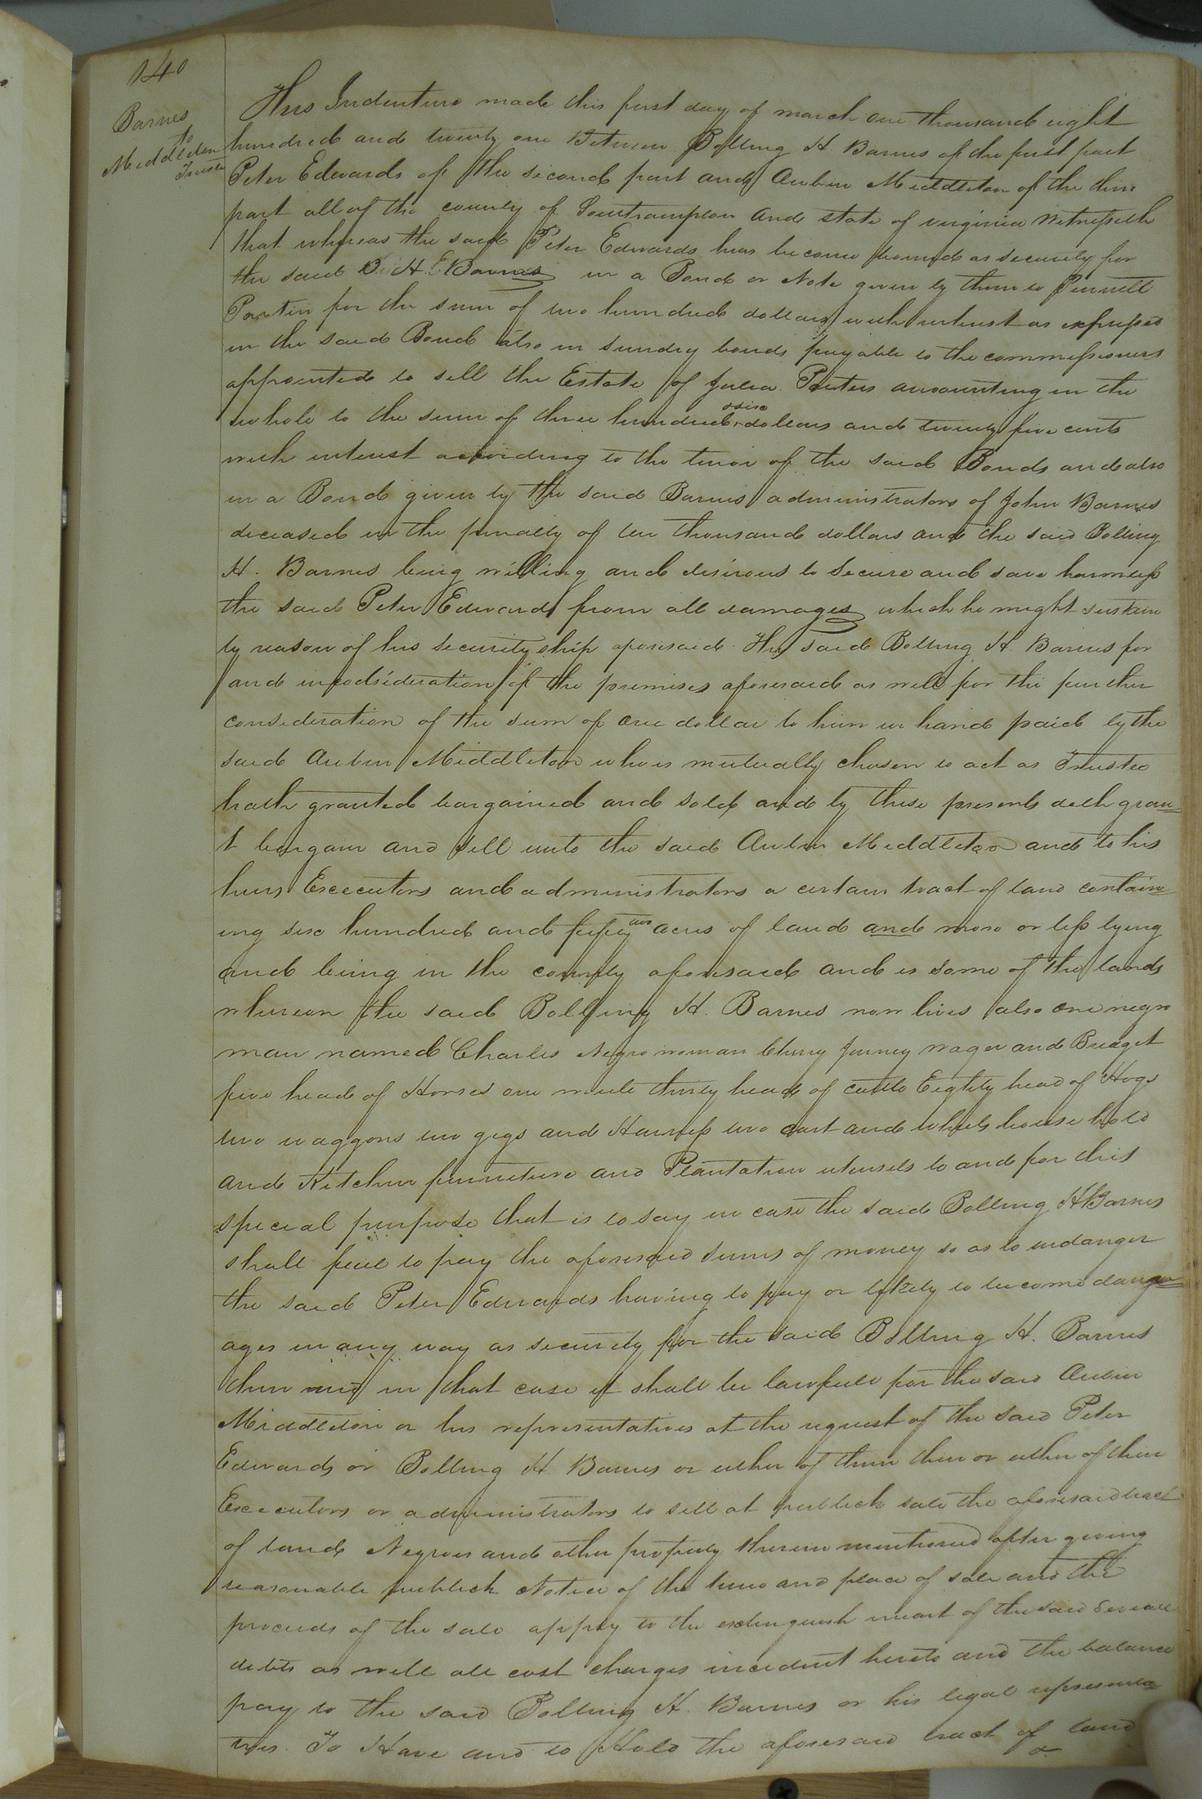 140
Barnes
to
Middleton
Trustee
This Indenture made this first day of march one thousand eight
hundred and twenty one Between Bolling H Barnes of the first part
Peter Edwards of the second part and Aubin Middleton of the third
part all of the county of Southampton and state of virginia Witnesseth
that whereas the said Peter Edwards has become bound as security for
the said B. H. Barnes in a Bond or Note given by them to Pennell
Portis for the sum of two hundred dollars with interest as expressed
in the said Bond also in sundry bonds payable to the commissioners
appointed to sell the Estate of Peters amounting in the
whole to the sum of three hundred & six dollars and twenty five cents
with interest according to the tenor of the said Bonds and also
in a Bond given by the said Barnes administrators of John Barnes
deceased in the penalty of ten thousand dollars and the said Bolling
H. Barnes being willing and desirous to secure and save harmless
the said Peter Edwards from all damages which he might sustain
by reason of his security ship aforesaid The said Bolling H Barnes for
and in considderation of the premises aforesaid as well for the further
consideration of the sum of one dollar to him in hand paid by the
said Aubin Middleton who is mutually chosen to act as Trustee
hath granted bargained and sold and by these presents doth gran=
t bargain and sell unto the said Aubin Middleton and to his
heirs Executors and administrators a certain tract of land contain=
ing six hundred and fifty acres of land and more or less lying
and being in the county aforesaid and is some of the lands
whereon the said Bolling H. Barnes now lives also one negro
man named Charles Negro woman Cherry and Bridget
five head of Horses one mule thirty head of cattle Eighty head of Hogs
two waggons two gigs and Harness two cart and wheels house hold
and Kitchen furniture and Plantation utensils to and for this
special purpose that is to say in case the said Bolling H Barnes
shall fail to pay the aforesaid sums of money so as to indanger
the said Peter Edwards having to pay or likely to become dam=
ages in any way as security for the said Bolling H. Barnes
then in that case it shall be lawfull for the said Aubin
Middleton or his representatives at the request of the said Peter
Edwards or Bolling H Barnes or either of them then or either of their
Executors or administrators to sell at publick sale the aforesaid tract
of land Negroes and other property therein mentioned after giving
reasonable publick Notice of the time and place of sale and the
proceeds of the sale apply to the extinguish ment of the said several
debts as well all cost charges incident hereto and the balance
pay to the said Bolling H. Barnes or his legal representa
tives. To Have and to Hold the aforesaid tract of land